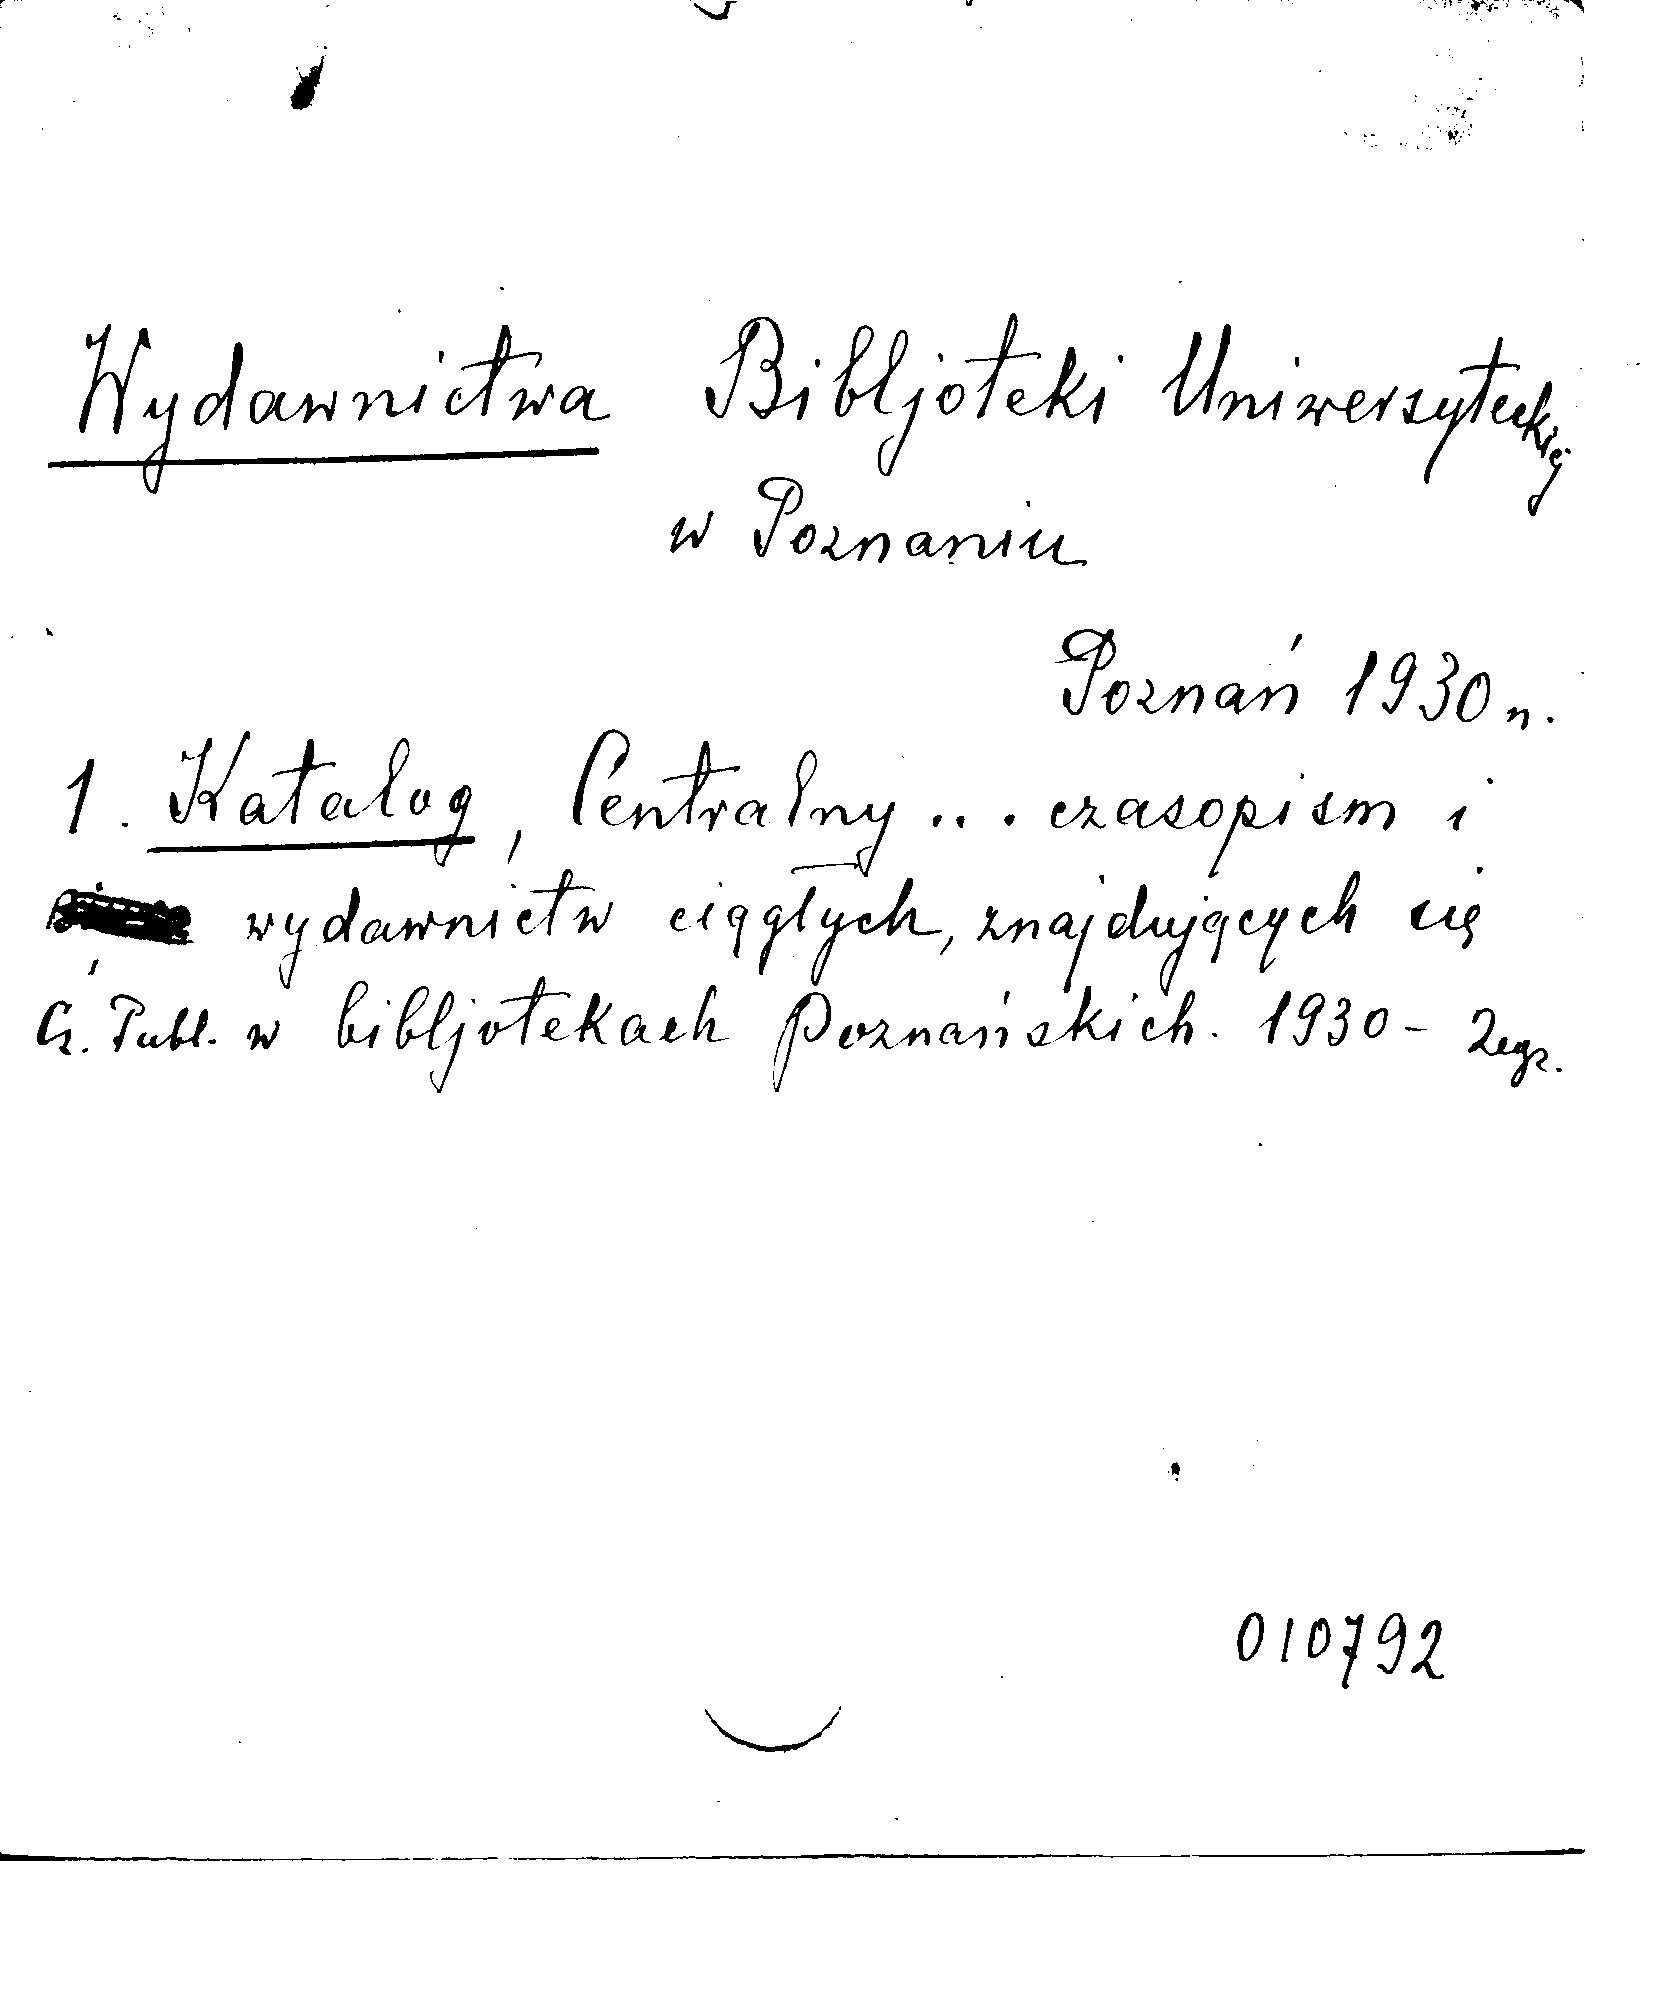 Wydawnictwa Bibljoteki Uniwersyteckiej
w Poznaniu
Poznań 1930 n.
1. Katalog, Centralny... czasopism i
wydawnictw ciągłych, znajdujących się
Cz. Publ. w bibljotekach Poznańskich. 1930 - 2 egz.
010792